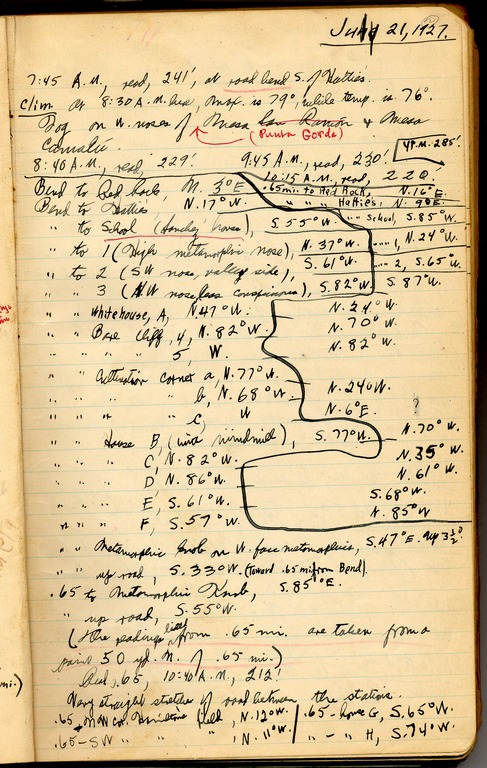 July 21, 1927.
7:45 A.M., read, 241', at road bend S. of Hattie's.
Clim. At 8:30 A.M. here, max. is 79°, while temp. is 76°.
Fog on W. noses of Mesa San Ramon & Mesa
(Punta Gorda)
4 P.M. 285'.
8:40 A.M., read, 229'. 9:45 A.M., read, 230'.
10:15 A.M. read, 220'.
Bend to Red Rock, N. 3° E. .65 mi. to Red Rock, N. 16° E.
Bend to Hattie's N. 17° W. " " " Hattie's, N. 9° E.
" to School (Sanchez' house), S. 55° W. " " School, S. 85° W.
" to 1 (High metamorphic nose), N. 37° W. " " 1, N. 24° W.
" to 2 (SW nose, valley side), S. 61° W. " " 2, S. 65° W.
" " 3 (NW nose, less conspicuous), S. 82° W. S. 87° W.
" " Whitehouse, A, N. 47° W. N. 24° W.
" " Base cliff, 4, N. 82° W. N. 70° W.
" " " 5, W. N. 82° W.
" " Cultivation corner a, N. 77° W.
" " " " b, N. 68° W. N. 24° W.
" " " " c, W N. 6° E. ?
" " House B, (with windmill), S. 77° W. N. 70° W.
" " " C, N. 82° W. N. 35° W.
" " " D, N. 86° W. N. 61° W.
" " " E, S. 61° W. S. 68° W.
" " " F, S. 57° W. N. 85° W
" " Metamorphic knob on W. face metamorphics, S. 47° E. up 3½°
" " up road, S. 33° W. (toward .65 mi. from Bend).
.65 to Metamorphic Knob, S. 85° E.
" up road, S. 55° W.
(The readings listed from .65 mi. are taken from a
point 50 yd. N. of .65 mi.)
Read, .65, 10:40 A.M., 212'.
Very straight stretches of road between the stations.
.65 on NW cor. Hamilton's field, N. 12° W. .65 - house G, S. 65° W.
.65 - SW " " " N. 11° W. " - " H, S. 74° W.